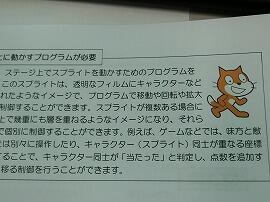 とに動かすプログラムが必要
ステージ上でスプライトを動かすためのプログラムを
このスプライトは、透明なフィルムにキャラクターなど
れたようなイメージで、プログラムで移動や回転や拡大
制御することができます。スプライトが複数ある場合に
上で幾重にも層を重ねるようなイメージになり、それら
で個別に制御することができます。例えば、ゲームなどでは、味方と敵
では別々に操作したり、キャラクター（スプライト）同士が重なる座標
することで、キャラクター同士が「当たった」と判定し、点数を追加す
移る制御を行うことができます。